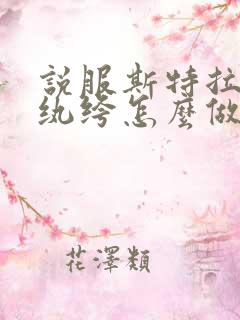 説服斯特拉
纨绔怎麼做
花澤類